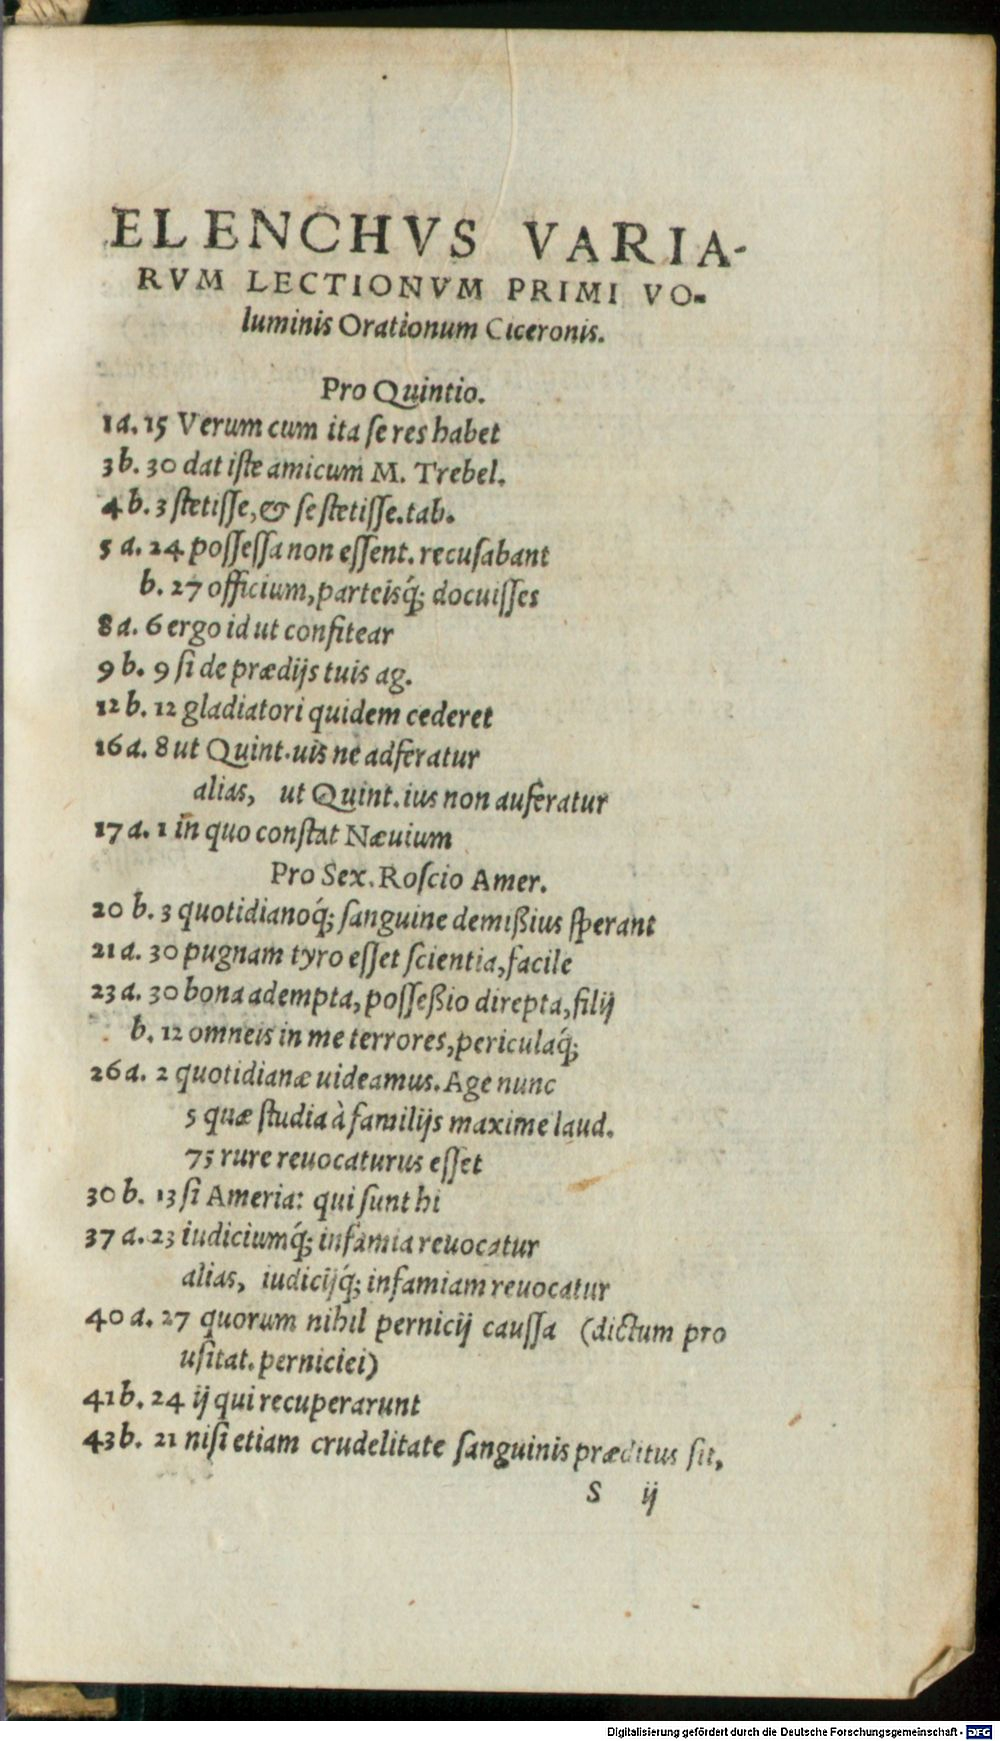 ELENCHVS VARIA-
RVM LECTIONVM PRIMI VO-
luminis Orationum Ciceronis.
Pro Quintio.
1 a. 15 Verum cum ita se res habet
3 b. 30 dat iste amicum M. Trebel.
4 b. 3 stetisse, & se stetisse. tab.
5 a. 24 possessa non essent. recusabant
b. 27 officium, parteisq́; docuisses
8 a. 6 ergo id ut confitear
9 b. 9 si de prædijs tuis ag.
12 b. 12 gladiatori quidem cederet
16 a. 8 ut Quint. uis ne adferatur
alias, ut Quint. ius non auferatur
17 a. 1 in quo constat Næuium
Pro Sex. Roscio Amer.
20 b. 3 quotidianoq́; sanguine demißius sperant
21 a. 30 pugnam tyro esset scientia, facile
23 a. 30 bona adempta, posseßio direpta, filij
b. 12 omneis in me terrores, periculaq́;
26 a. 2 quotidianæ uideamus. Age nunc
5 quæ studia à familijs maxime laud.
75 rure reuocaturus esset
30 b. 13 si Ameria: qui sunt hi
37 a. 23 iudiciumq́; infamia reuocatur
alias, iudicijq́; infamiam reuocatur
40 a. 27 quorum nihil pernicij caussa (dictum pro
usitat. perniciei)
41 b. 24 ij qui recuperarunt
43 b. 21 nisi etiam crudelitate sanguinis præditus sit,
S ij
Digitalisierung gefördert durch die Deutsche Forschungsgemeinschaft - DFG